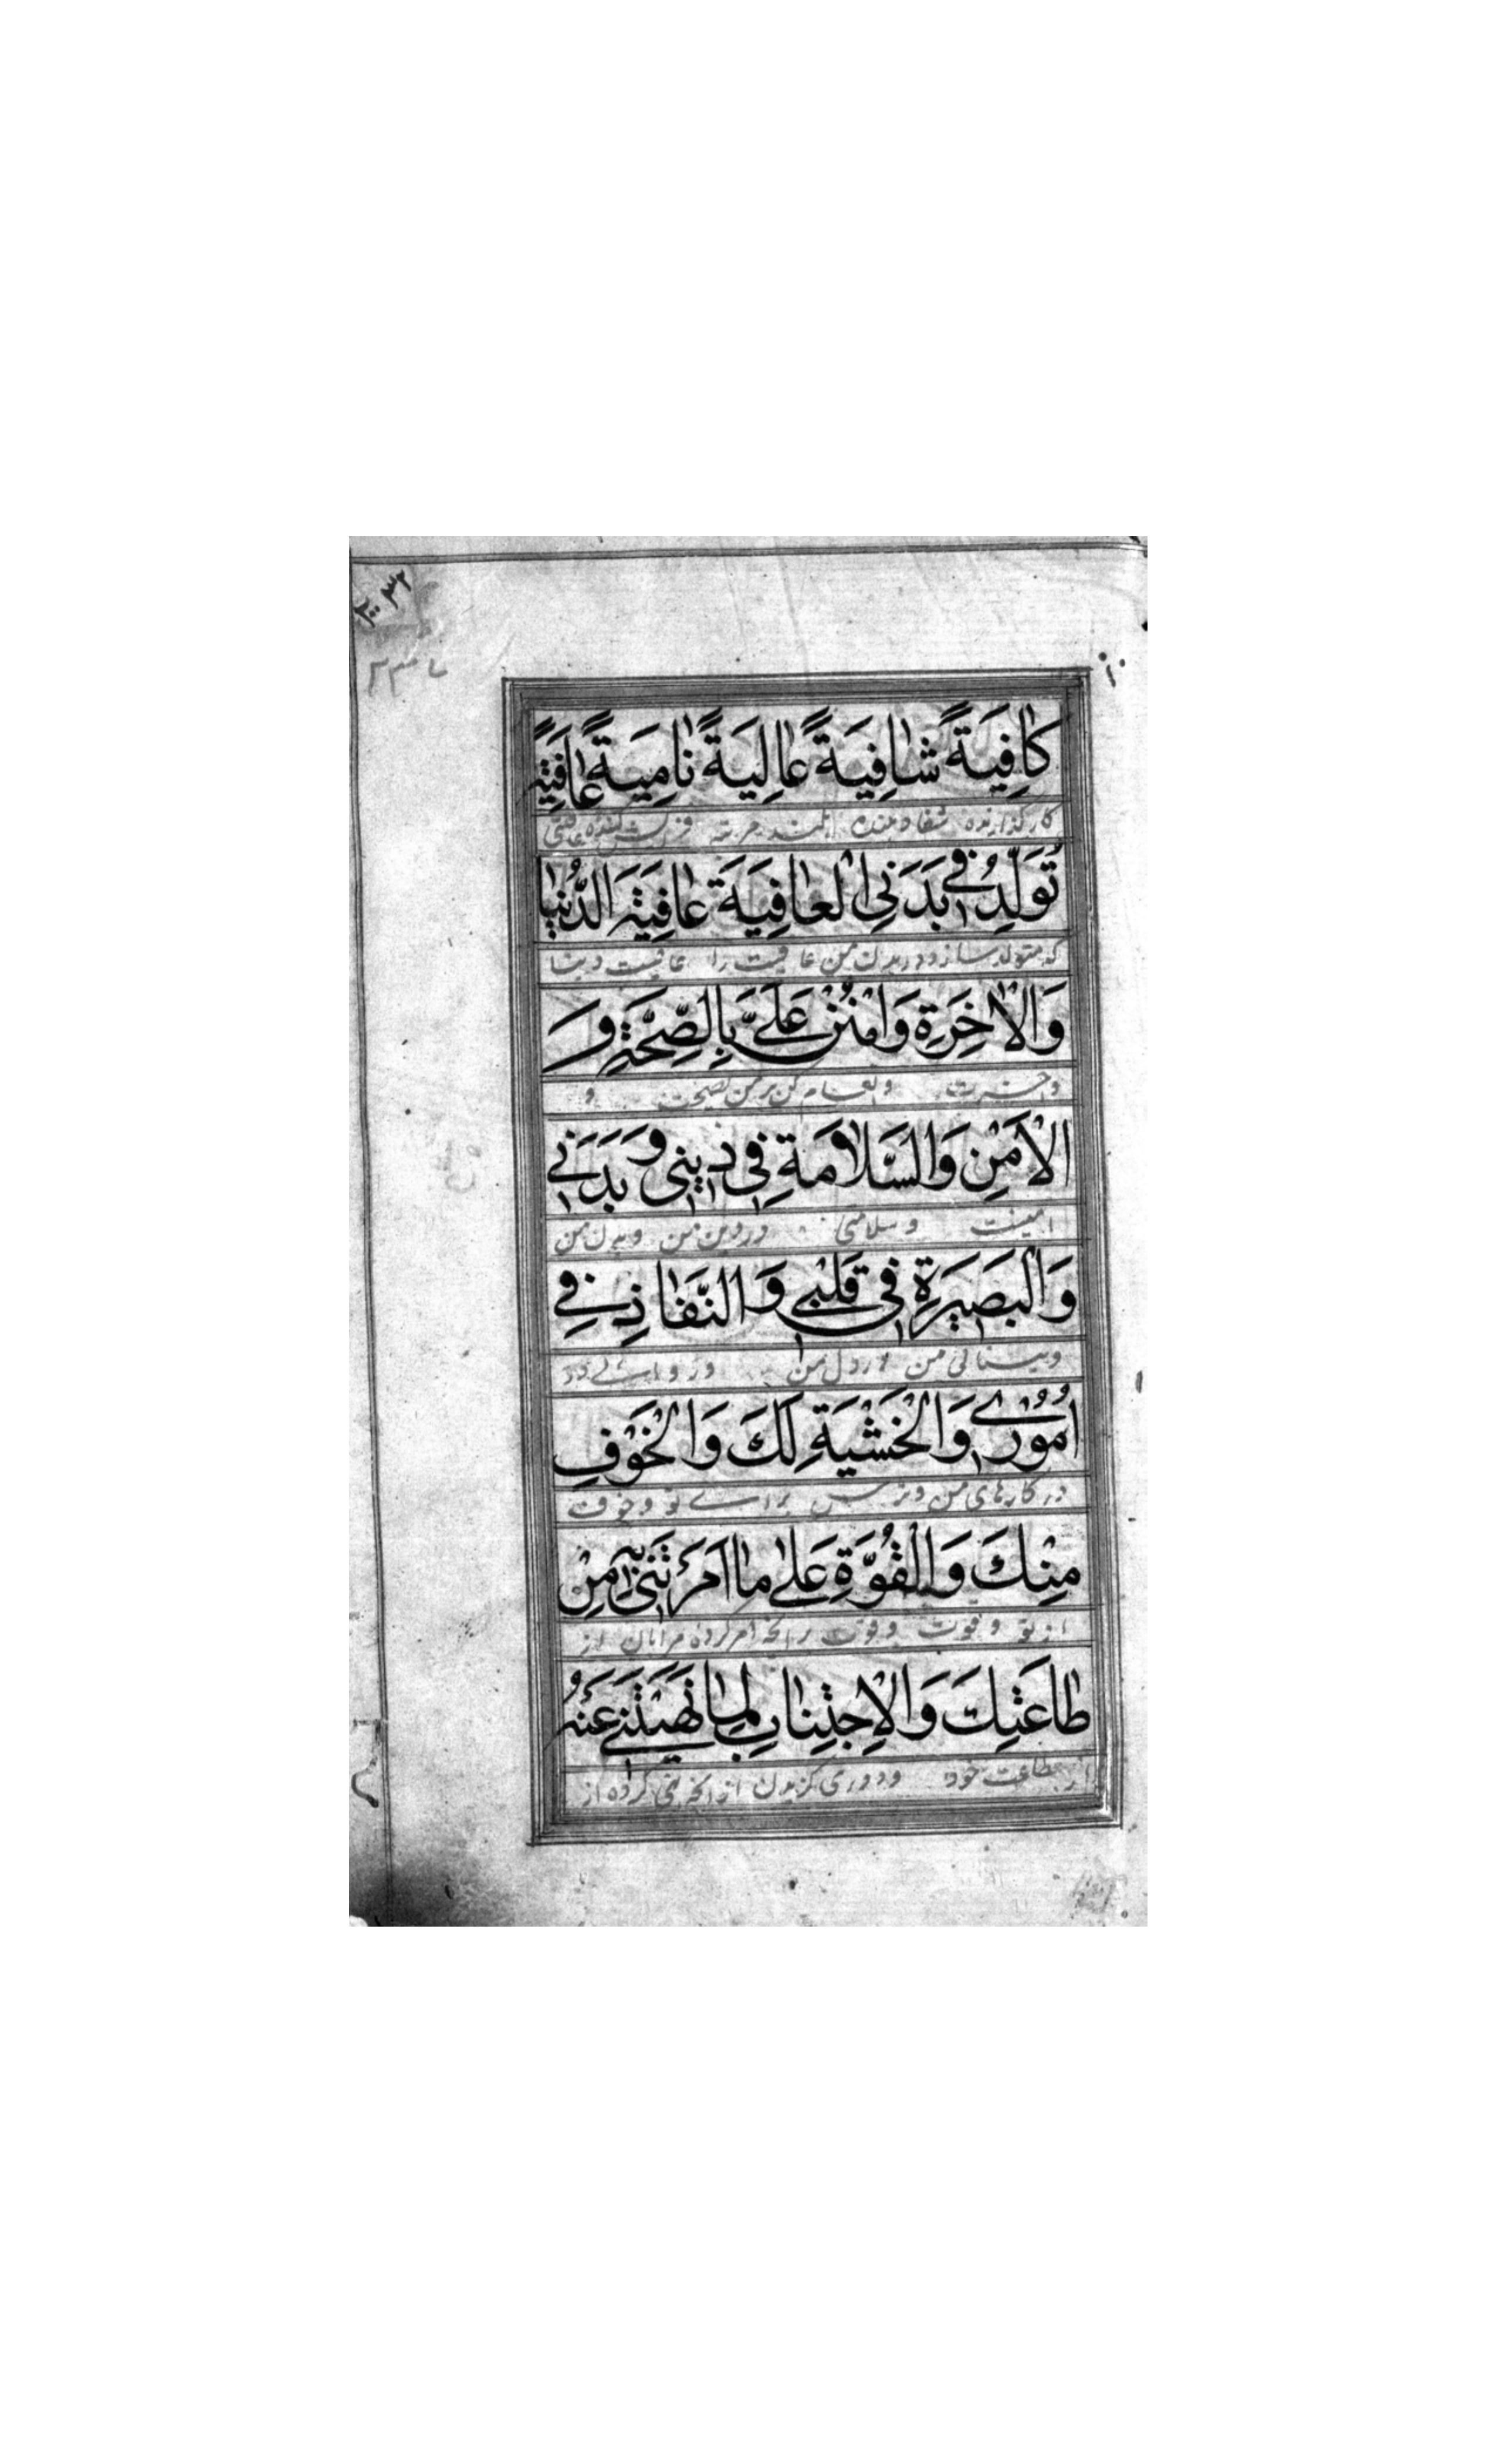 كافِيَةً شافِيَةً عالِيَةً نامِيَةً عافِيَةً
كار گذارنده شفا دهنده بلند مرتبه كننده عافیتی
تُوَلِّدُ فِي بَدَنِي الْعافِيَةَ عافِيَةَ الدُّنْيا
كه متولد سازد در بدن من عافیت را عافیت دینا
وَالْاٰخِرَةِ وَامْنُنْ عَلَيَّ بِالصِّحَّةِ وَ
و آخرت و انعام كن بر من بصحت و
الْاَمْنِ وَالسَّلامَةِ فِي دِينِي وَبَدَنِي
امینت و سلامتی در دین من و بدن من
وَالْبَصِيرَةِ فِي قَلْبِي وَالنَّفاذِ فِي
و بینائی من در دل من و روائے در
اُمُورِي وَالْخَشْيَةِ لَكَ وَالْخَوْفِ
در كارهای من و ترس براے تو و خوف
مِنْكَ وَالْقُوَّةِ عَلىٰ ما اَمَرْتَنِي بِهِ مِنْ
از تو و قوت و قوت بر آنچه امر كرده مرا بان از
طاعَتِكَ وَالْاِجْتِنابِ لِما نَهَيْتَنِي عَنْهُ
از طاعت خود و دوری گزیدن از آنچه نهی كرده از